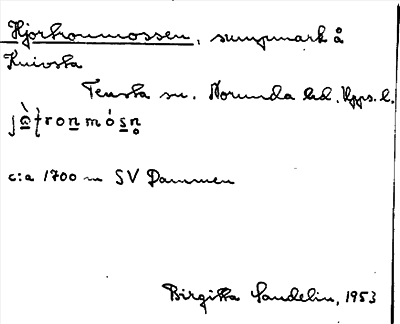 Hjortronmossen, sumpmark å
Knivsta
Tensta sn. Norunda hd. Upps. l.
jà̱ʈronmósn̥
c:a 1700 m SV Dammen
Birgitta Sandelin, 1953